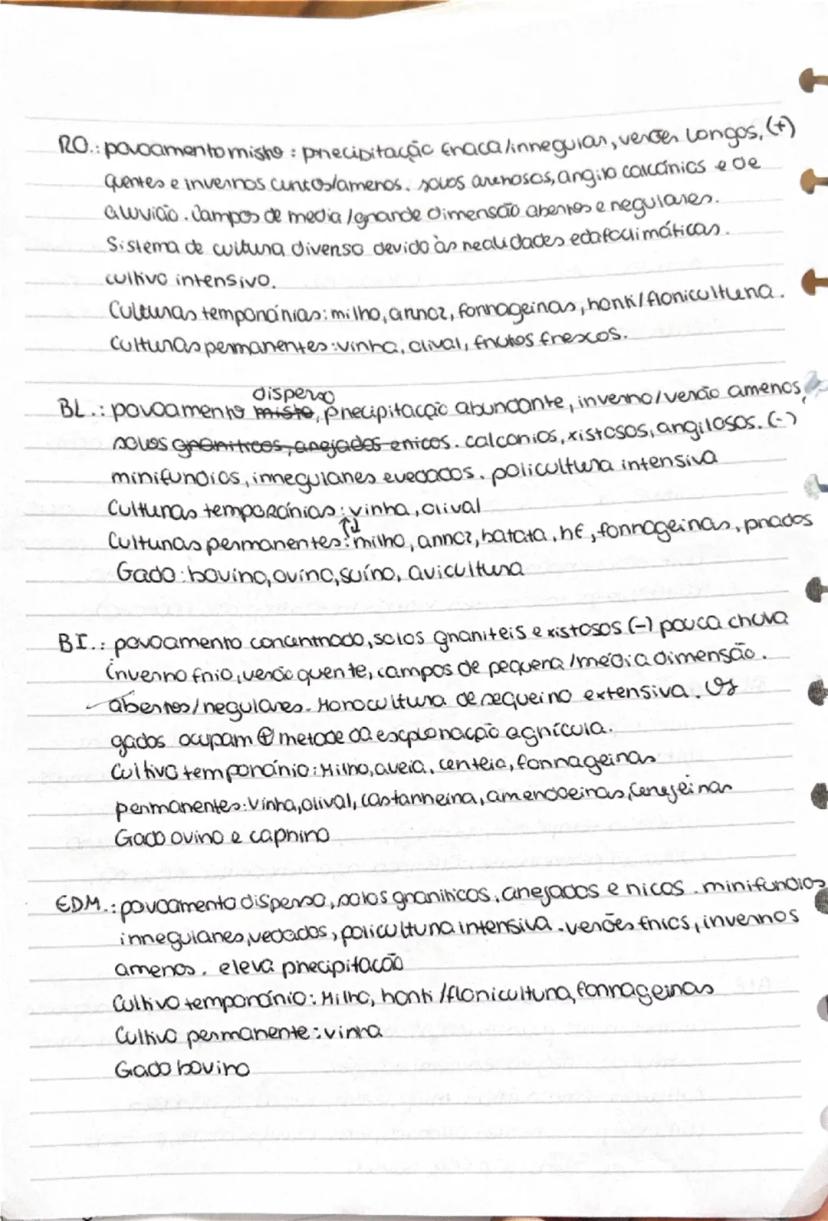 RO.: povoamento misto: precipitação fraca/irregular, verões longos, (+)
quentes e invernos curtos/amenos. solos arenosos, argilo calcários e de
aluvião. Campos de media/grande dimensão abertos e regulares.
Sistema de cultura diverso devido às realidades edafoclimáticas.
cultivo intensivo.
Culturas temporárias: milho, arroz, forrageiras, horti/floricultura.
culturas permanentes: vinha, olival, frutos frescos.
disperso
BL.: povoamento misto, precipitação abundante, inverno/verão amenos,
solos graniticos, arejados e ricos. calcarios, xistosos, argilosos. (-)
minifundios, irregulares e vedados. policultura intensiva
Culturas temporárias: vinha, olival
↑↓
Culturas permanentes: milho, arroz, batata, hf, forrageiras, prados
Gado: bovino, ovino, suíno, avicultura
BI.: povoamento concentrado, solos graniteis e xistosos (-) pouca chuva
inverno frio, verão quente, campos de pequena/média dimensão.
abertos/regulares. Monocultura de sequeiro extensiva. Os
gados ocupam ⊕ metade da exploração agrícula.
Cultivo temporário: Milho, aveia, centeio, forrageiras
permanentes: vinha, olival, castanheira, amendoeiras, cerejeiras
Gado ovino e caprino
EDM.: povoamento disperso, solos graniticos, arejados e ricos. minifundios
irregulares, vedados, policultura intensiva. verões frios, invernos
amenos. eleva precipitação
Cultivo temporário: Milho, horti/floricultura, forrageiras
Cultivo permanente: vinha
Gado bovino